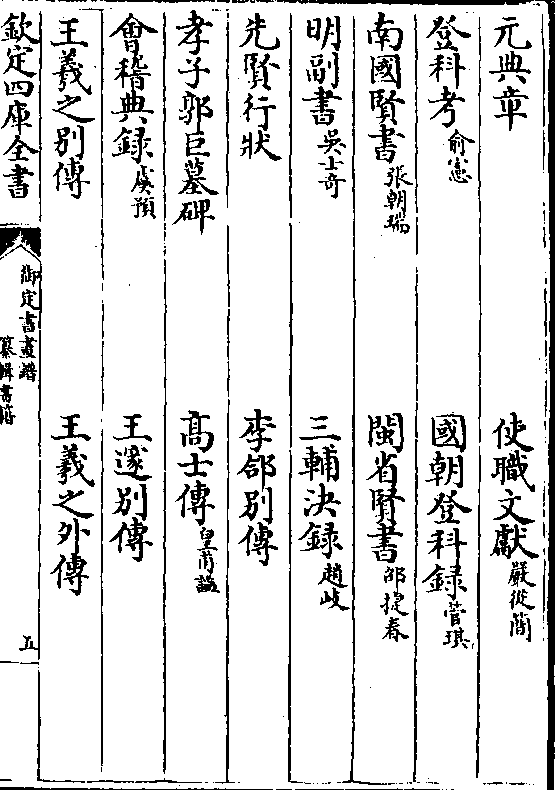 元典章　使職文獻嚴從簡
登科考俞憲　國朝登科録管琪
南國賢書張朝瑞　閩省賢書邵捉春
明副書吳士奇　三輔決録趙岐
先賢行狀　李郃別傳
孝子郭巨墓碑　高士傳皇甫謐
會稽典録虞預　王邃別傳
王羲之別傳　王羲之外傳
欽定四庫全書
御定書畫譜
纂輯書籍
五